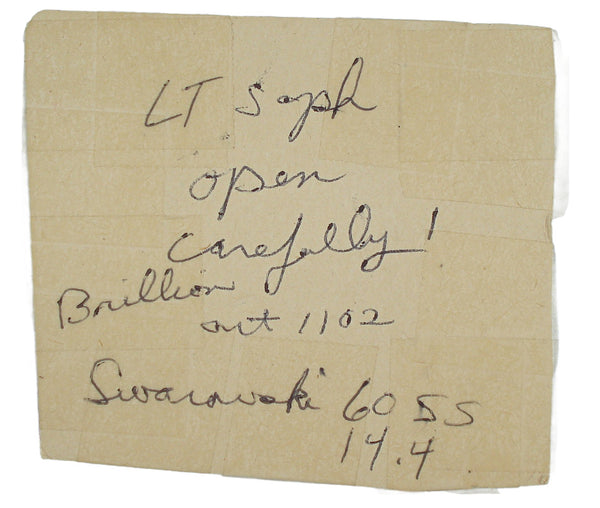 LT Saph
open
carefully!
Brillion
art 1102
Swarowski 60 SS
14.4